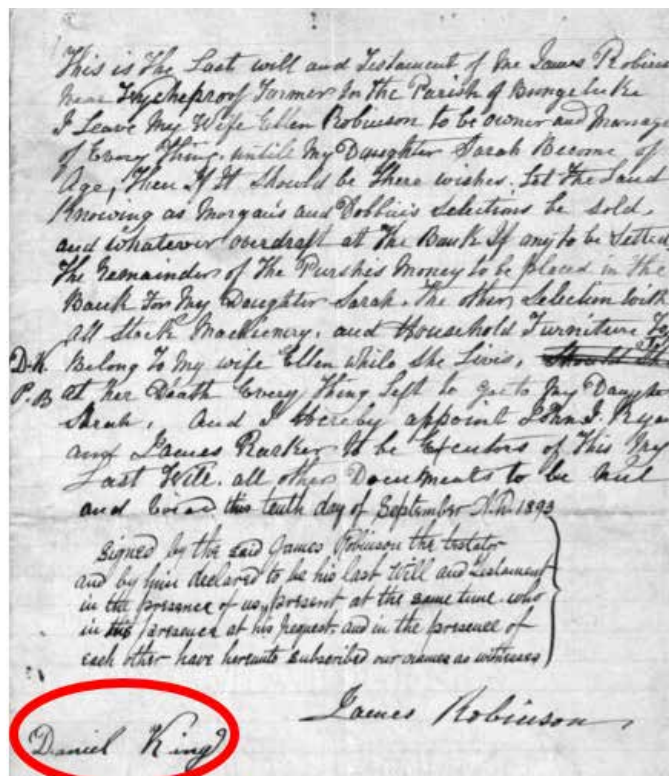 This is The Last will and Testament of Me James Robinso
Near Wycheproof Farmer In the Parish of Bungeluke
I Leave My Wife Ellen Robinson to be owner and Manage
of Every Thing. untile My Daughter Sarah Become of
Age, Then If It Should be There wishes. Let The Land
Knowing as Morgan's and Dobbin's Selections be sold,
and whatever overdraft at The Bank If any to be Setted
The Remainder of The Purshes Money to be placed in the
Bank For My Daughter Sarah. The other Selection with
all Stock Machienery. and Household Furniture To
D.K. Belong To My wife Ellen while She Livis, Should She
P.B at her Death Every Thing Left to go to My Daughte
Sarah, and I Hereby appoint John J. Ryan
and James Barker To be Executors of This My
Last Will. all other Documents to be Nul
and Void this tenth day of September A.D. 1893
Signed by the said James Robinson the testator
and by him declared to be his last Will and Testament
in the presence of us, present at the same time who
in his presence at his request, and in the presence of
each other have hereunto subscribed our names as witnesses
James Robinson,
Daniel King